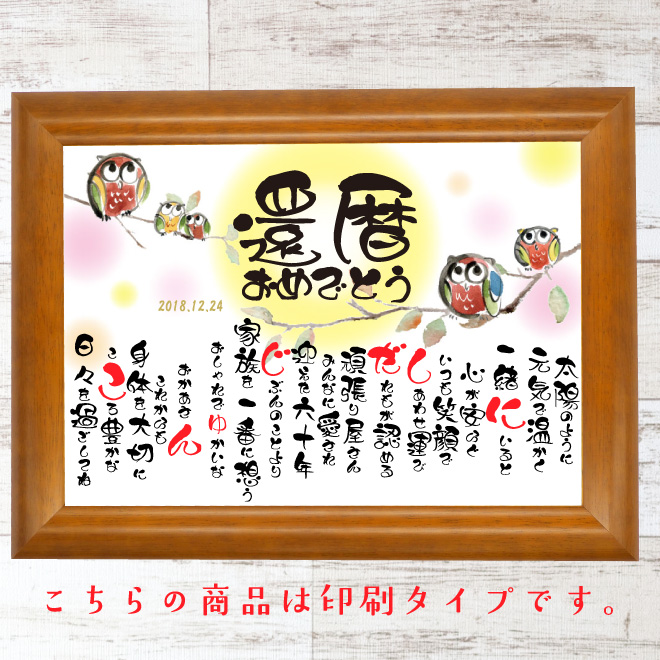 還暦
おめでとう
2018.12.24
太陽のように
元気で温かく
一緒にいると
心が安らぐ
いつも笑顔で
しあわせ運ぶ
だれもが認める
頑張り屋さん
みんなに愛され
迎えた六十年
じぶんのことより
家族を一番に想う
おしゃれでゆかいな
おかあさん
これからも
身体を大切に
こころ豊かな
日々を過ごしてね
こちらの商品は印刷タイプです。